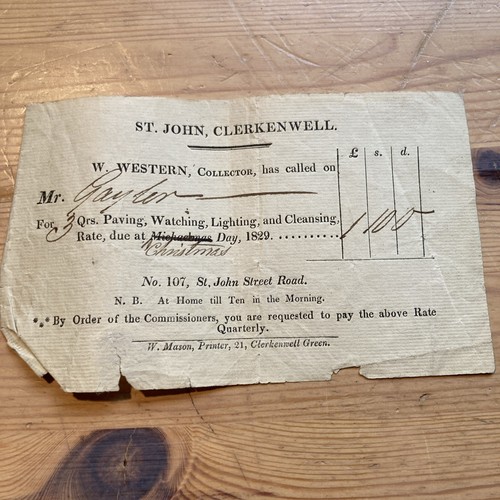 ST. JOHN, CLERKENWELL.
W. WESTERN, COLLECTOR, has called on £ s. d.
Mr. Gayler
For 3 Qrs. Paving, Watching, Lighting, and Cleansing,
Rate, due at Michaelmas Day, 1829. .......... 1 10 0
Christmas
No. 107, St. John Street Road.
N. B. At Home till Ten in the Morning.
*** By Order of the Commissioners, you are requested to pay the above Rate
Quarterly.
W. Mason, Printer, 21, Clerkenwell Green.